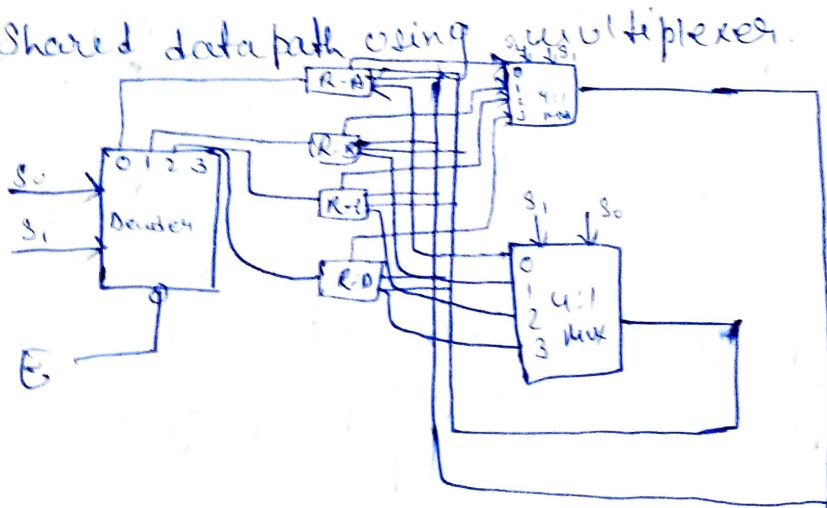 Shared data path using multiplexer.
S0 S1
R-A
0
1
2
3
4:1
mux
R-B
0 1 2 3
S0
Decoder
R-C
S1
S1
S0
R-D
0
1
2
3
4:1
Mux
E